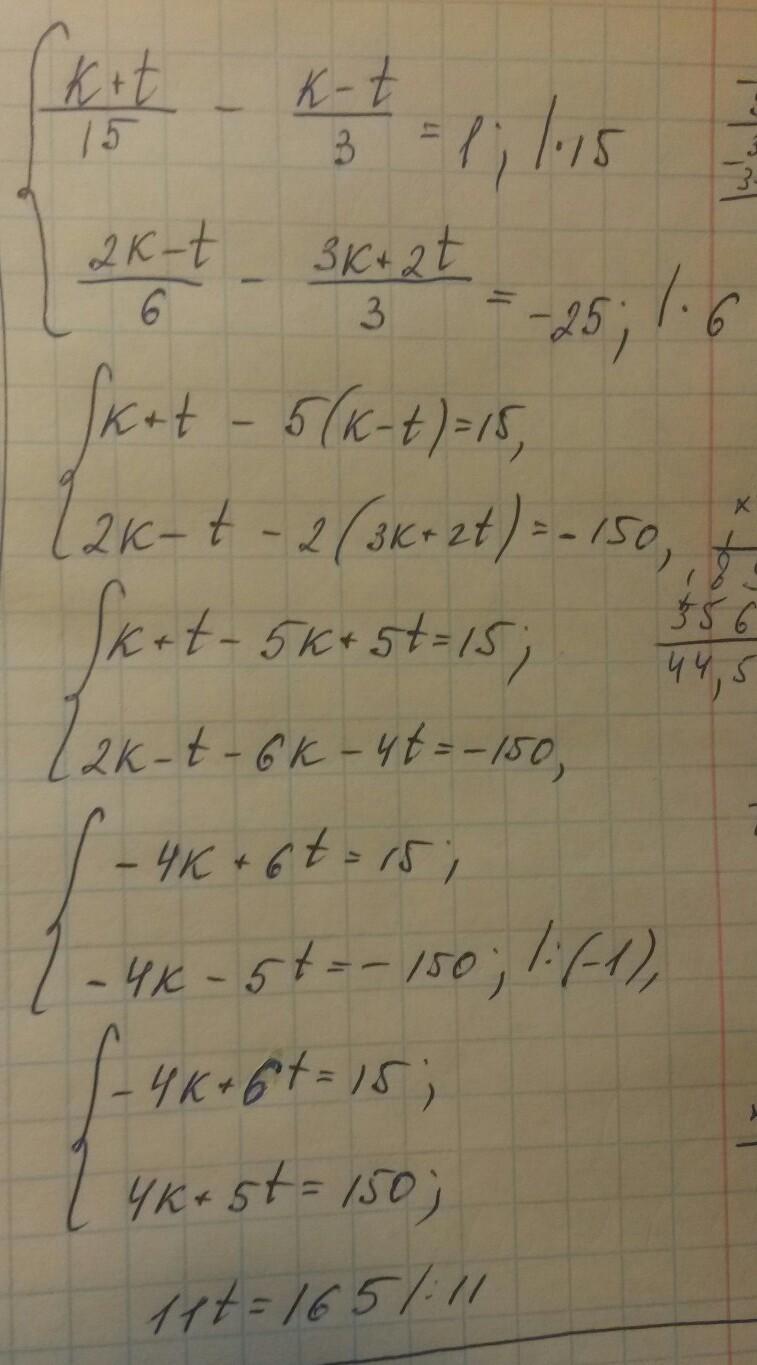 (k+t)/15 - (k-t)/3 = 1; |·15
(2k-t)/6 - (3k+2t)/3 = -25; |·6
k+t - 5(k-t)=15,
2k-t - 2(3k+2t)=-150,
k+t-5k+5t=15;
2k-t-6k-4t=-150,
-4k+6t=15;
-4k-5t=-150; |:(-1),
-4k+6t=15;
4k+5t=150;
11t=165 |:11
356
44,5